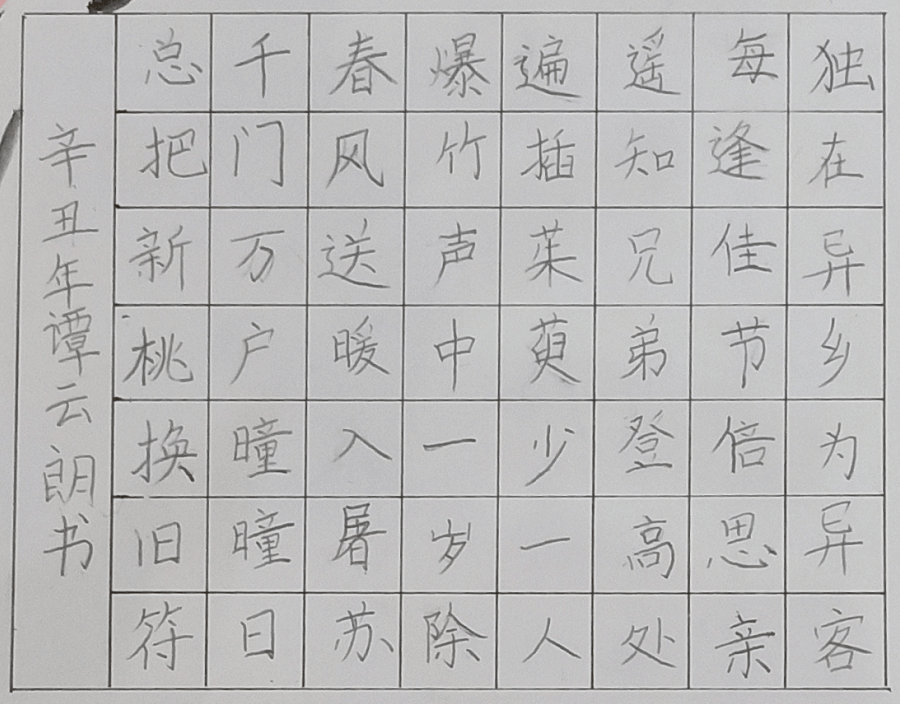 独在异乡为异客
每逢佳节倍思亲
遥知兄弟登高处
遍插茱萸少一人
爆竹声中一岁除
春风送暖入屠苏
千门万户曈曈日
总把新桃换旧符
辛丑年谭云朗书